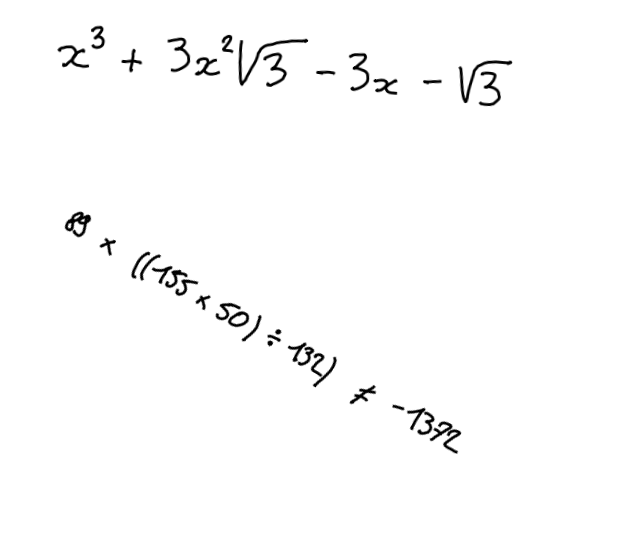 x³ + 3x²√3 - 3x - √3
89 × ((155 × 50) ÷ 132) ≠ -1372